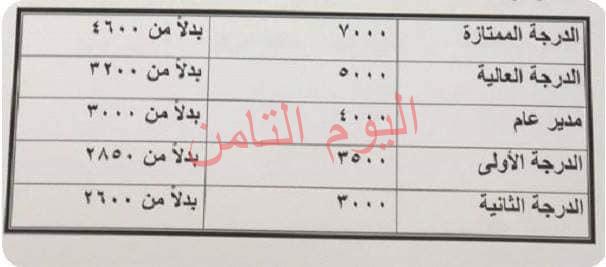 الدرجة الممتازة ٧٠٠٠ بدلاً من ٤٦٠٠
الدرجة العالية ٥٠٠٠ بدلاً من ٣٢٠٠
مدير عام ٤٠٠٠ بدلاً من ٣٠٠٠
الدرجة الأولى ٣٥٠٠ بدلاً من ٢٨٥٠
الدرجة الثانية ٣٠٠٠ بدلاً من ٢٦٠٠
اليوم الثامن